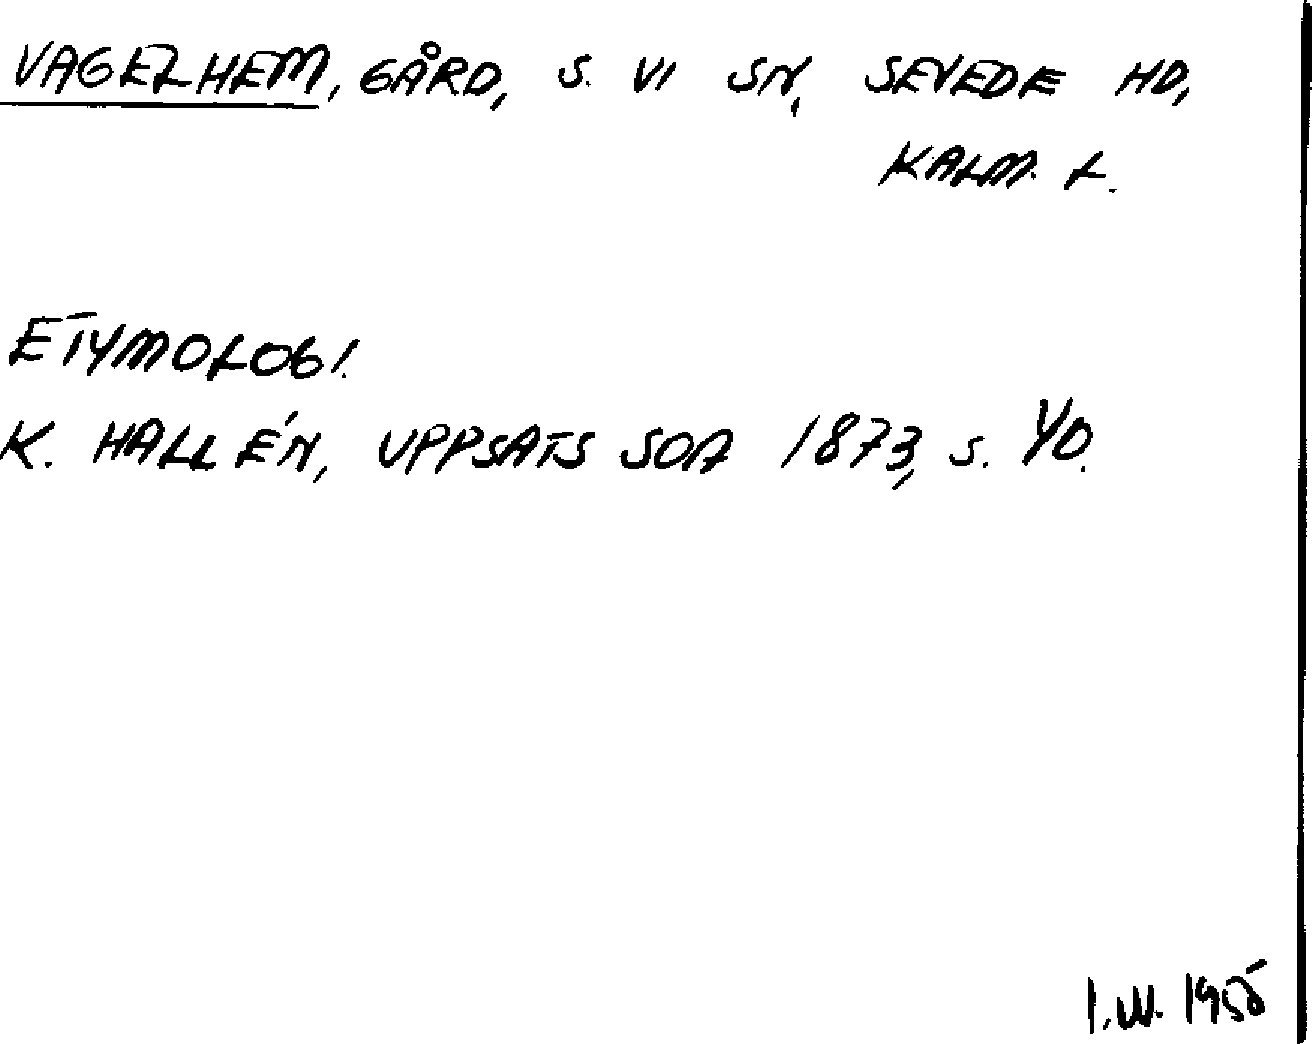 VAGELHEM, GÅRD, S. VI SN, SEVEDE HD,
KALM. L.
ETYMOLOGI.
K. HALLÉN, UPPSATS SOA 1873, S. 40.
I.W. 1955